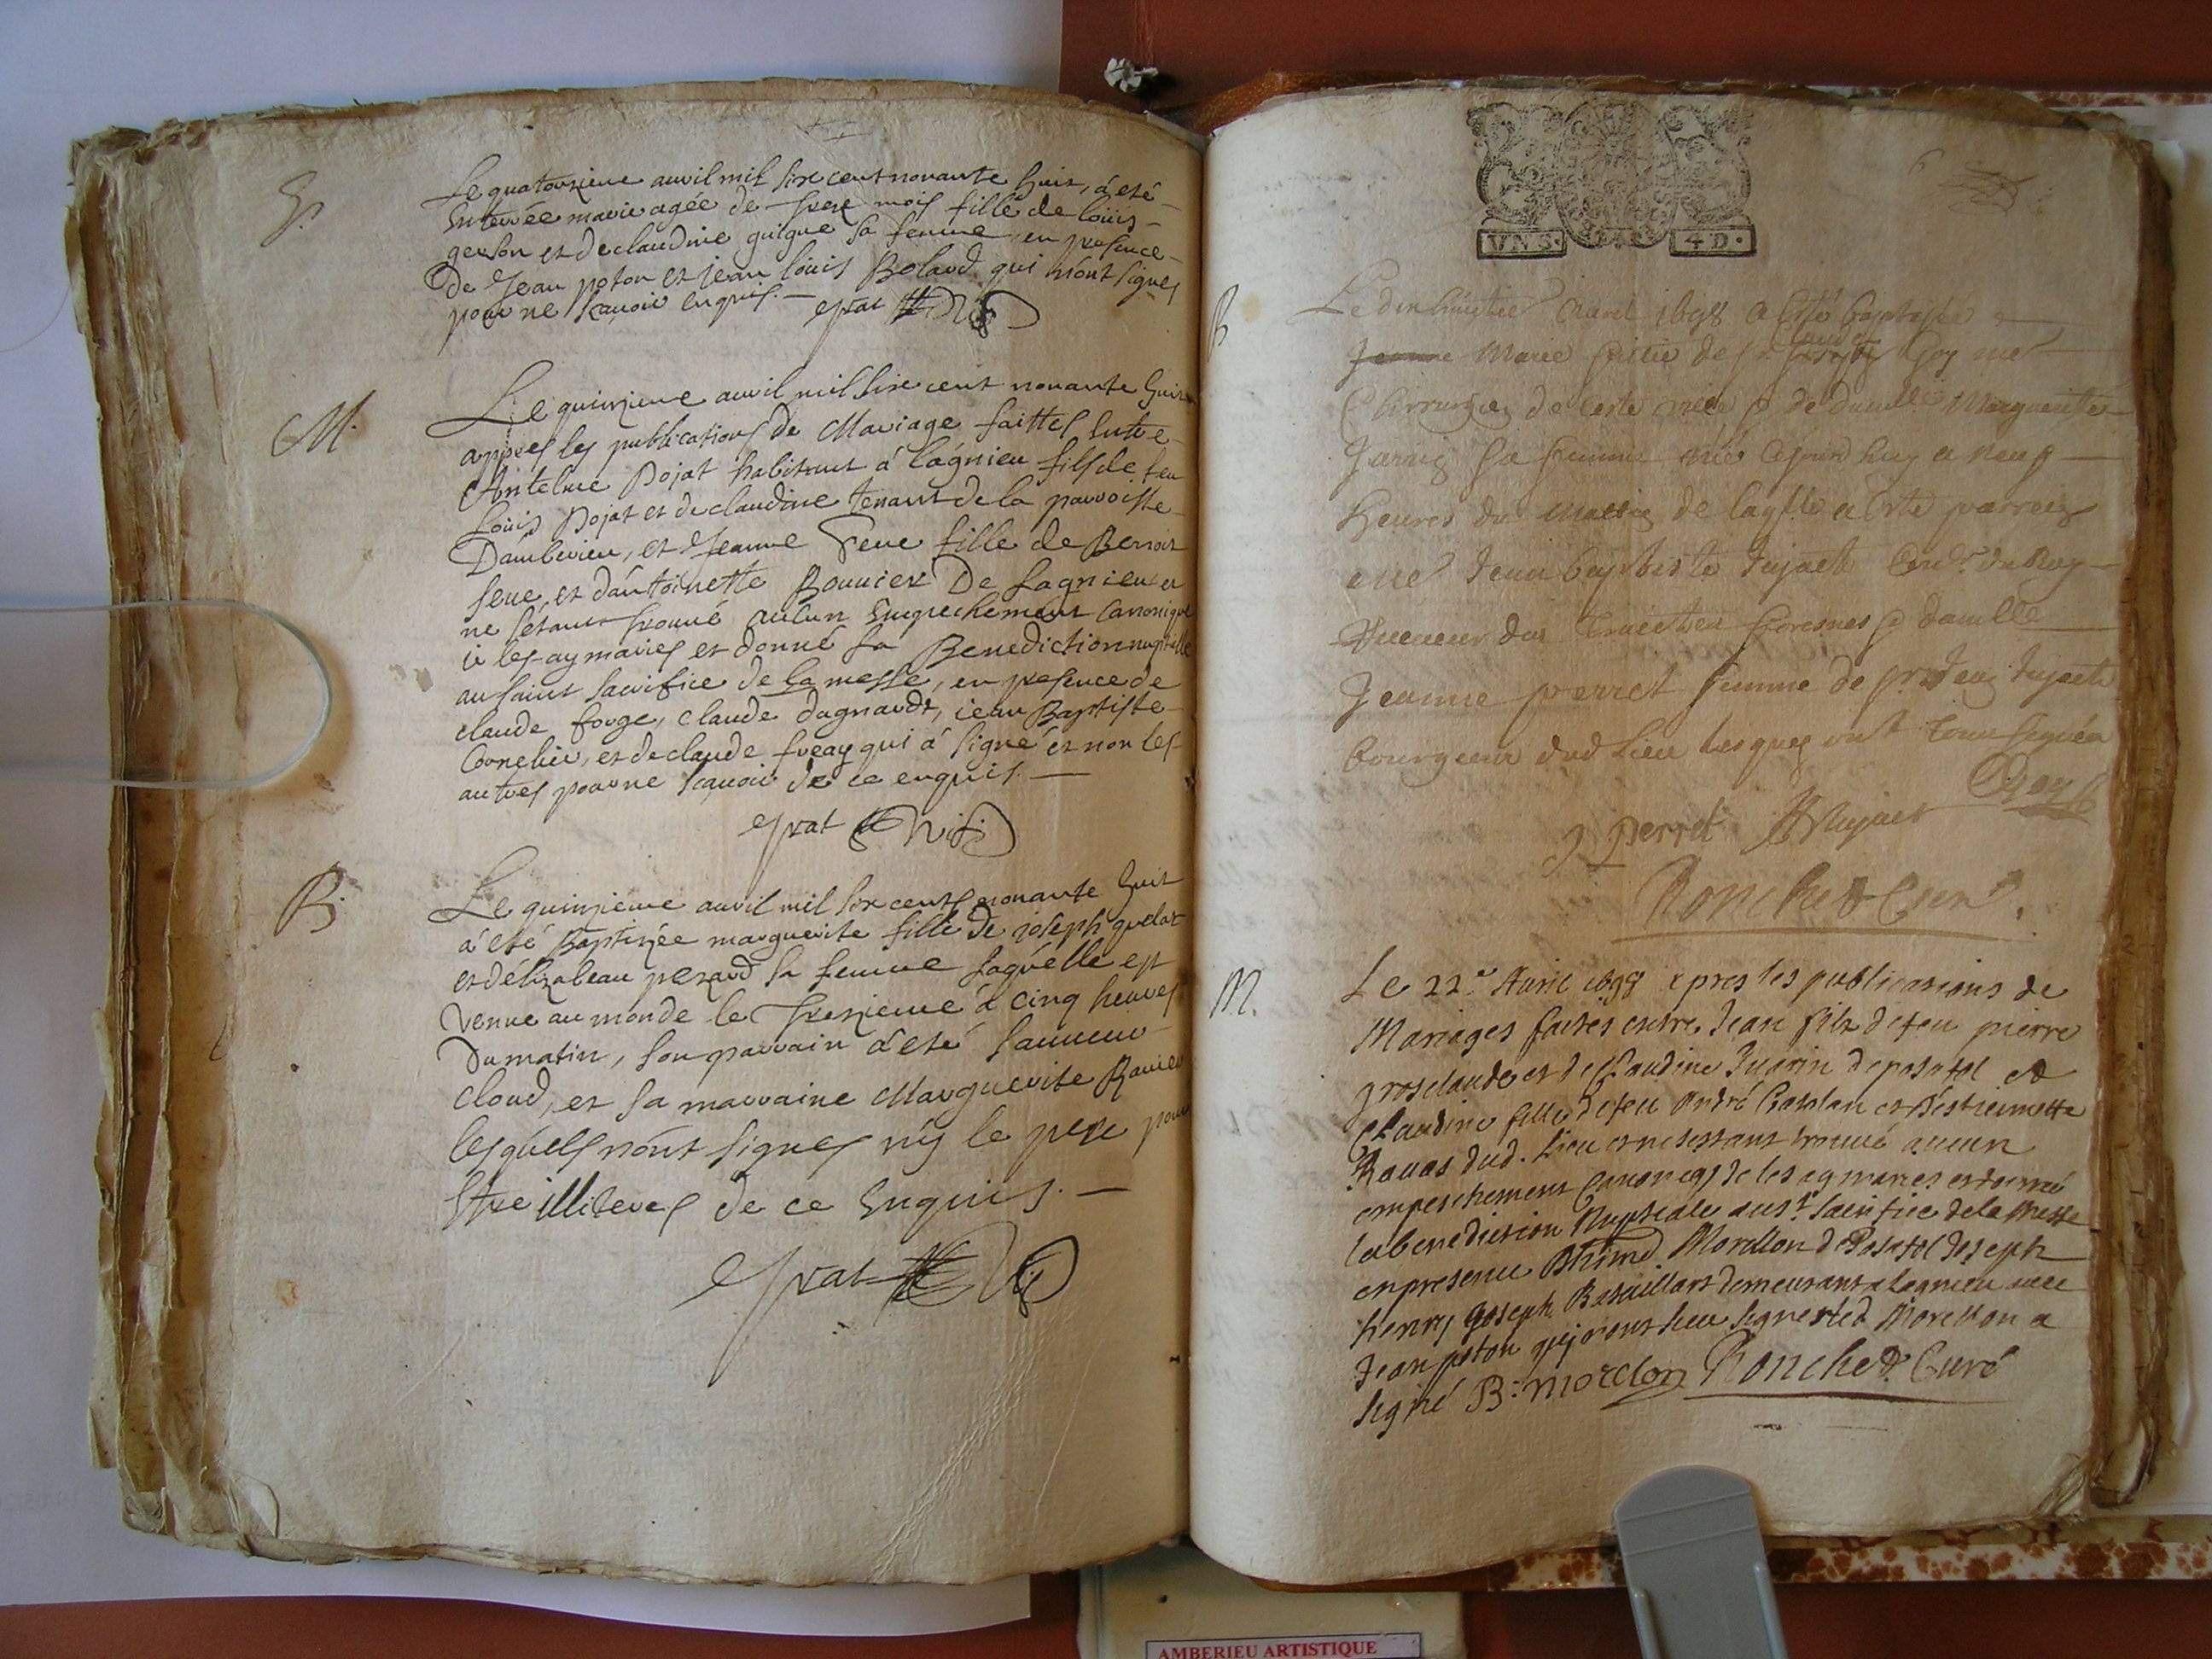 S.
Le quatorzieme avvil mil six cent nonante huit, á eté
Enterrée marie agée de treze mois fille de loüis
gerson et de claudine guigue sa femme en presence
De Jean poton et jean loüis Bolard qui n'ont signes
pour ne sçavoir enquis.
M.
Le quinzieme avvil mil six cent nonante huit
apres les publications de Mariage faittes Entre
Antelme Dojat habitant á lágnieu fils de feu
Loüis Dojat et de claudine tenant de la parroisse
Damberieu, et Jeanne seve fille de Benoit
seve et d'antoinette Bonnier De Lagnieu et
ne sétant trouvé aucun Empechement Canonique
je les ay mariés et donné la Benediction nuptialle
au saint sacrifice de la messe, en presence de
claude forge, claude dagnaudt, jean Baptiste
Cornelier, et de claude freay qui á signé et non les
autres pour ne sçavoir de ce enquis.
B.
Le quinziéme avvil mil six cents nonante huit
á eté Baptizée marguerite fille De joseph quelat
et délizabeau perard sa femme laquélle est
Venue au monde le trezieme á cinq heures
Du matin, son parrain á eté
cloud, et sa marraine Marguerite
lesquels n'ont signes ny le pere pour
Etre illiteres de ce Enquis.
VN S. 4 D.
B
Le dixhuitie Avril 1698 a esté baptisée
Marie fille de Sr Goy me
Chirurgien de ceste ville & de damlle Marguerite
Jarrig sa femme née cejourdhuy a neuf
heures du mattin de laqlle a esté parrein
Jean baptiste Dujact du Roy
Receveur des & damlle
Jeanne perret femme de Sr Dujact
bourgeois dud Lieu lesquels ont tous signéz
Goy
J perret Dujact
Ronchet Curé.
M.
Le 22e Avril 1698 apres les publications de
Mariages faites entre Jean filz de feu pierre
grosclaude et de Claudine Guarin de posafol et
Claudine fille de feu André Casolan et d'estiennette
Ravas dud. Lieu et ne sestant trouvé aucun
empeschement Canonicq Je les ay mariés et donné
la benediction Nuptiale au st Sacrifice de la Messe
en presence Bthimé Morellon de Posafol Joseph
henry Joseph Bataillart demeurant a Lagnieu avec
Jean poton qui n'ont sceu signer et led Morellon a
signé B: morelon Ronchet Curé
AMBERIEU ARTISTIQUE